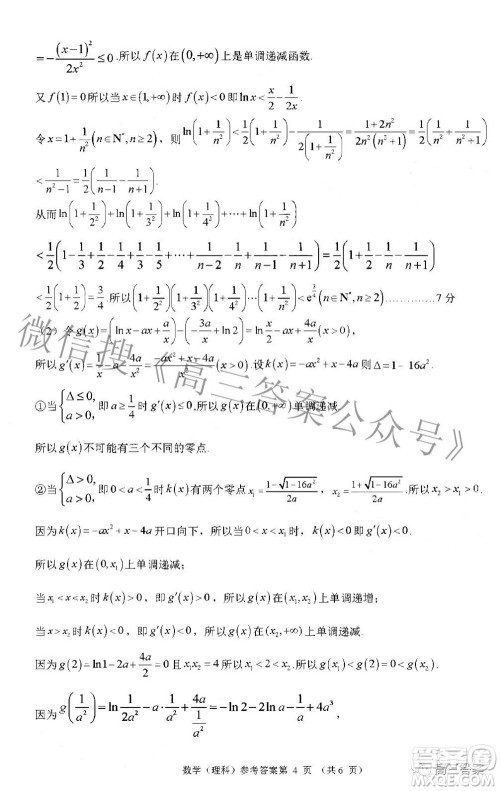 $=-\frac{(x-1)^2}{2x^2}\leq 0$.所以$f(x)$在$(0,+\infty)$上是单调递减函数.
又$f(1)=0$所以当$x\in(1,+\infty)$时$f(x)<0$即$\ln x<\frac{x}{2}-\frac{1}{2x}$.
令$x=1+\frac{1}{n^2}(n\in\mathbf{N}^*,n\geq 2)$，则$\ln\left(1+\frac{1}{n^2}\right)<\frac{1}{2}\left(1+\frac{1}{n^2}\right)-\frac{1}{2\left(1+\frac{1}{n^2}\right)}=\frac{1+2n^2}{2n^2(n^2+1)}$
$<\frac{1}{n^2-1}=\frac{1}{2}\left(\frac{1}{n-1}-\frac{1}{n+1}\right)$
从而$\ln\left(1+\frac{1}{2^2}\right)+\ln\left(1+\frac{1}{3^2}\right)+\ln\left(1+\frac{1}{4^2}\right)+\cdots+\ln\left(1+\frac{1}{n^2}\right)$
$<\frac{1}{2}\left(1-\frac{1}{3}+\frac{1}{2}-\frac{1}{4}+\frac{1}{3}-\frac{1}{5}+\cdots+\frac{1}{n-2}-\frac{1}{n}+\frac{1}{n-1}-\frac{1}{n+1}\right)=\frac{1}{2}\left(1+\frac{1}{2}-\frac{1}{n}-\frac{1}{n+1}\right)$
$<\frac{1}{2}\left(1+\frac{1}{2}\right)=\frac{3}{4}$.所以$\left(1+\frac{1}{2^2}\right)\left(1+\frac{1}{3^2}\right)\cdots\left(1+\frac{1}{n^2}\right)<e^{\frac{3}{4}}(n\in\mathbf{N}^*,n\geq 2)$……………7 分
（2）令$g(x)=\left(\ln x-ax+\frac{a}{x}\right)-\left(-\frac{3a}{x}+\ln 2\right)=\ln\frac{x}{2}-ax+\frac{4a}{x}(x>0)$，
所以$g'(x)=\frac{1}{x}-a-\frac{4a}{x^2}=\frac{-ax^2+x-4a}{x^2}(x>0)$.设$k(x)=-ax^2+x-4a$则$\Delta=1-16a^2$.
①当$\begin{cases}\Delta\leq 0,\\a>0,\end{cases}$即$a\geq\frac{1}{4}$时$g'(x)\leq 0$.所以$g(x)$在$(0,+\infty)$单调递减
所以$g(x)$不可能有三个不同的零点.
②当$\begin{cases}\Delta>0,\\a>0,\end{cases}$即$0<a<\frac{1}{4}$时$k(x)$有两个零点$x_1=\frac{1-\sqrt{1-16a^2}}{2a}$，$x_2=\frac{1+\sqrt{1-16a^2}}{2a}$.所以$x_2>x_1>0$.
因为$k(x)=-ax^2+x-4a$开口向下，所以当$0<x<x_1$时$k(x)<0$，即$g'(x)<0$.
所以$g(x)$在$(0,x_1)$上单调递减；
当$x_1<x<x_2$时$k(x)>0$，即$g'(x)>0$，所以$g(x)$在$(x_1,x_2)$上单调递增；
当$x>x_2$时$k(x)<0$，即$g'(x)<0$，所以$g(x)$在$(x_2,+\infty)$上单调递减.
因为$g(2)=\ln 1-2a+\frac{4a}{2}=0$且$x_1x_2=4$所以$x_1<2<x_2$.所以$g(x_1)<g(2)=0<g(x_2)$.
因为$g\left(\frac{1}{a^2}\right)=\ln\frac{1}{2a^2}-a\cdot\frac{1}{a^2}+\frac{4a}{\frac{1}{a^2}}=-\ln 2-2\ln a-\frac{1}{a}+4a^3$，
数学（理科）参考答案第 4 页 （共 6 页）
微信搜《高三答案公众号》
高三答案